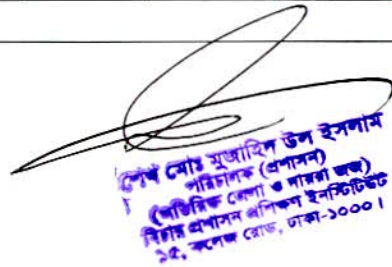 শেখ মোঃ মুজাহিদ উল ইসলাম
পরিচালক (প্রশাসন)
(অতিরিক্ত জেলা ও দায়রা জজ)
বিচার প্রশাসন প্রশিক্ষণ ইনস্টিটিউট
১৫, কলেজ রোড, ঢাকা-১০০০।